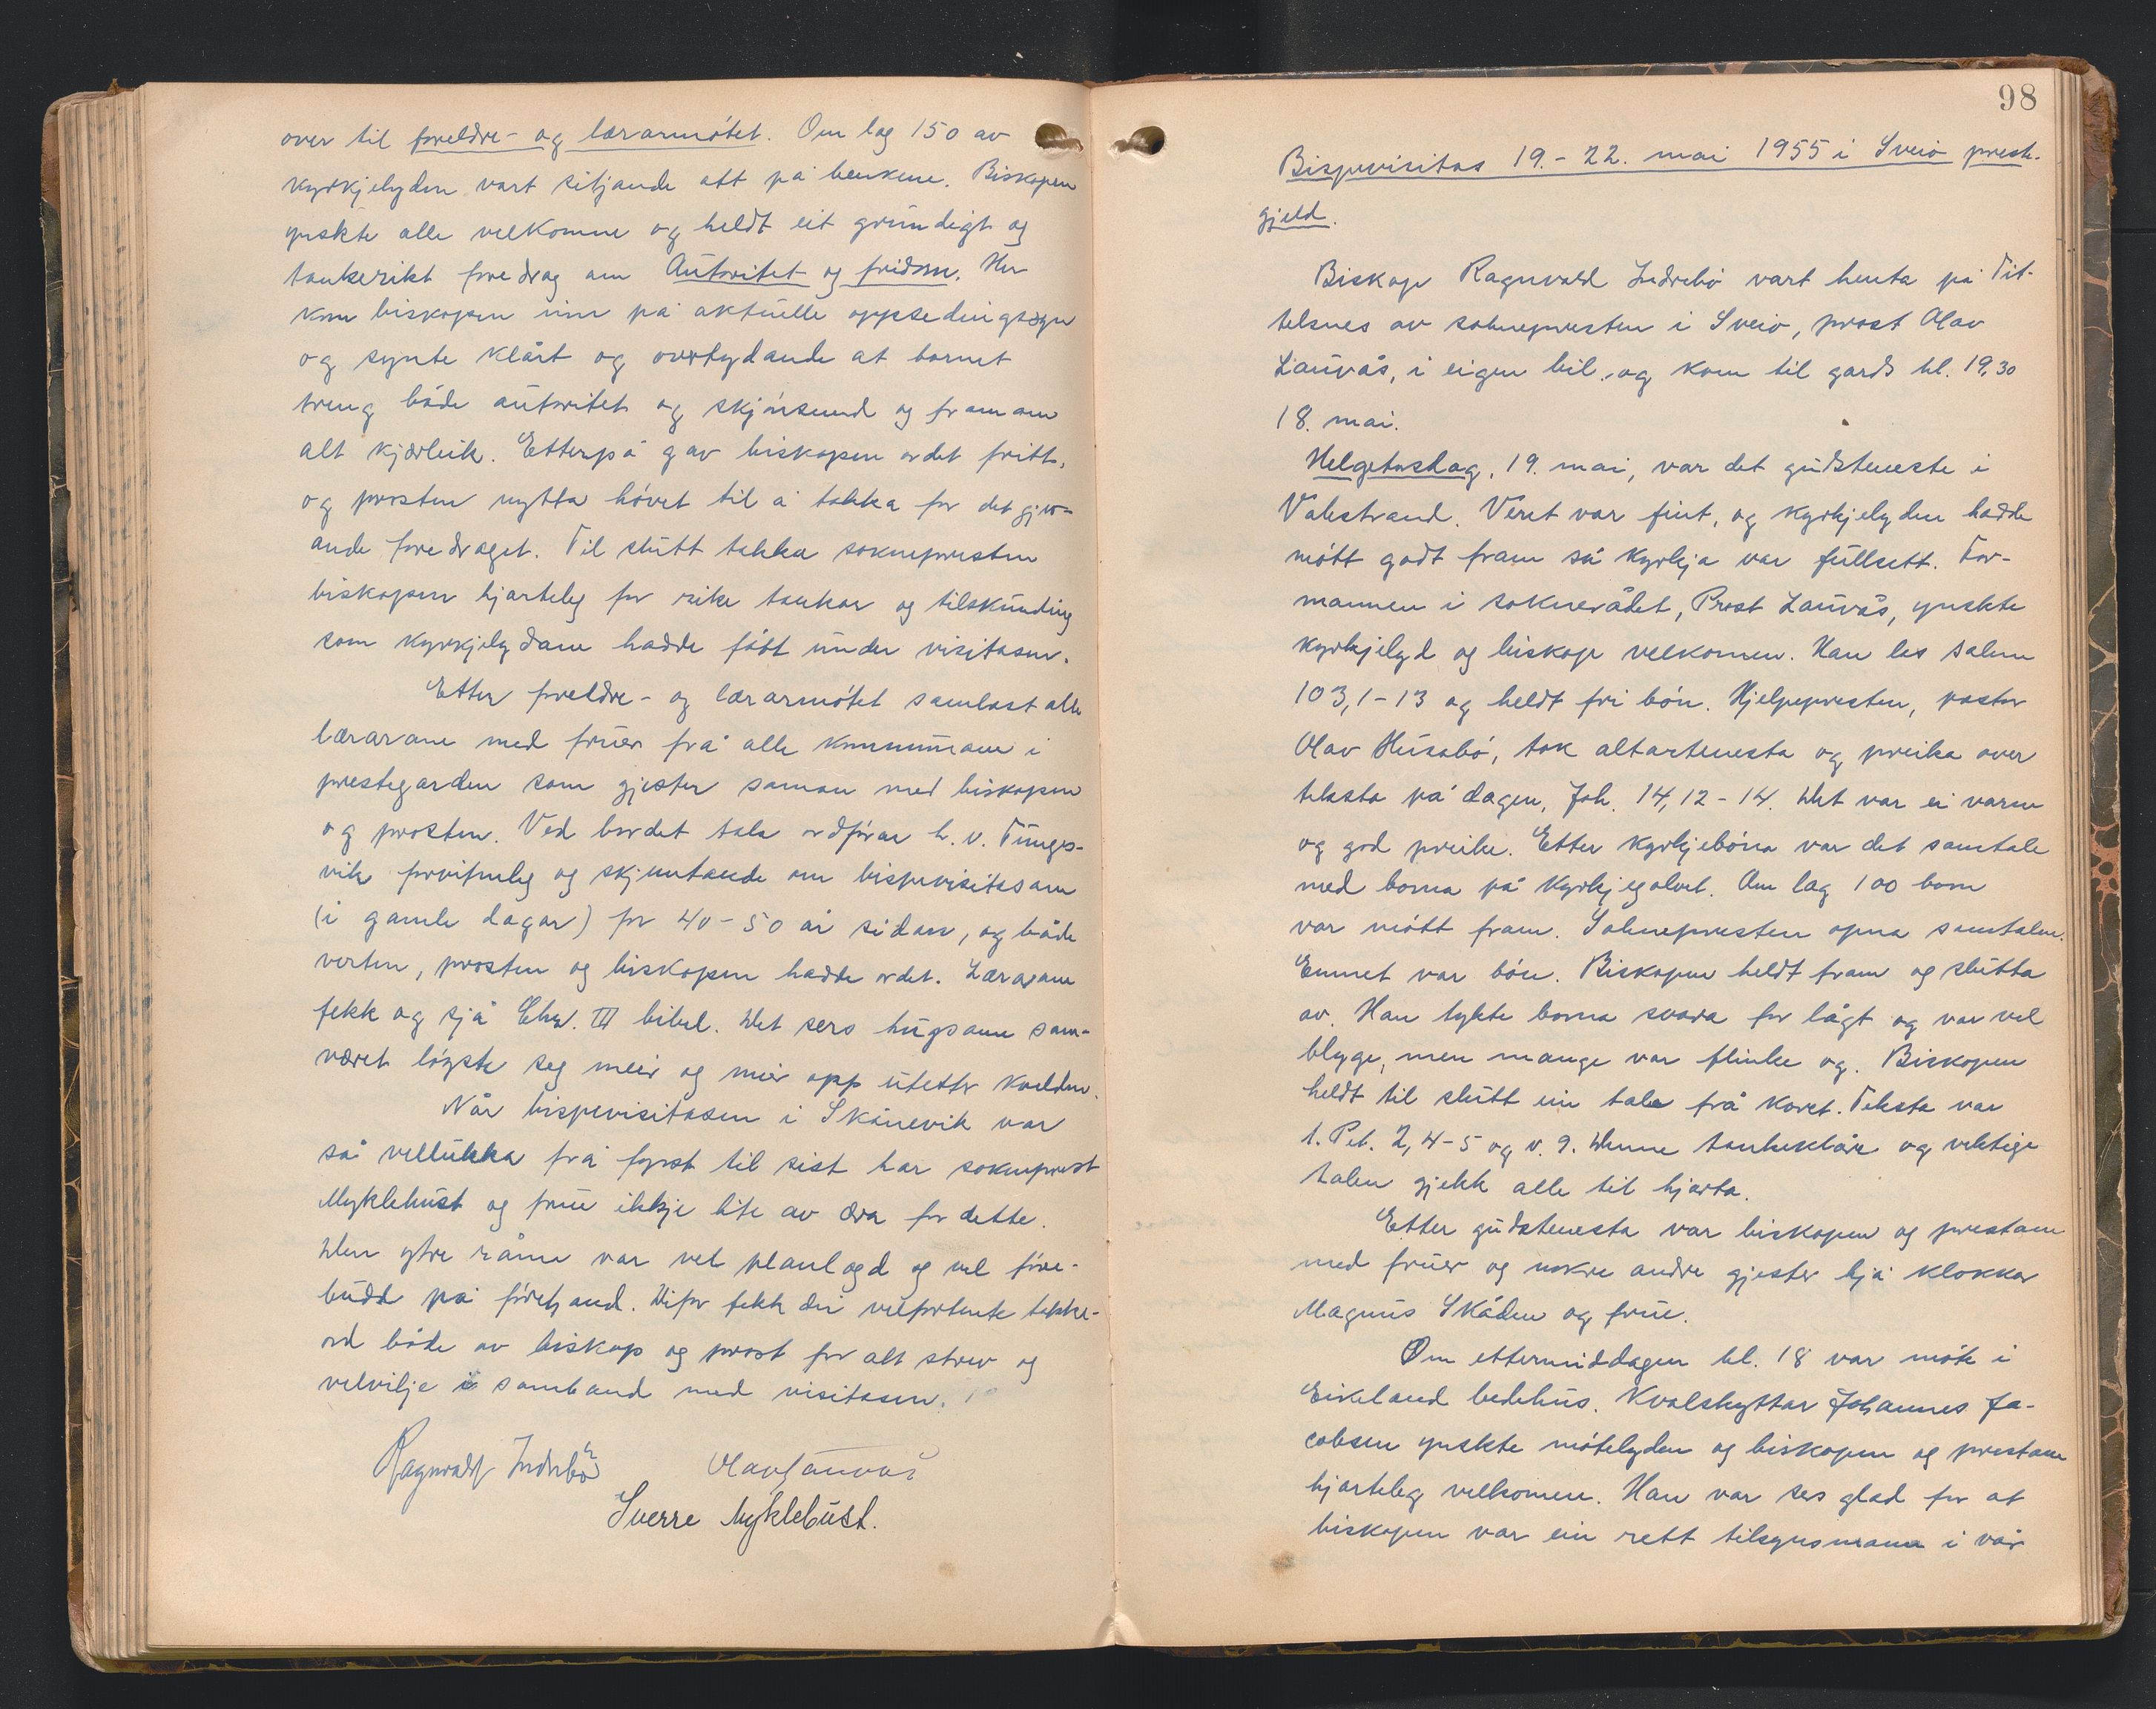 over til foreldre- og lærarmøtet. Om lag 150 av
kyrkjelyden vart sitjande att på benkene. Biskopen
ynskte alle velkomne og heldt eit grundigt og
tankerikt foredrag om Autoritet og fridom. Her
kom biskopen inn på aktuelle oppsedingsspm
og synte klårt og overtydande at bornet
treng både autoritet og skjønsemd og framom
alt kjærleik. Etterpå gav biskopen ordet fritt,
og prosten nytta høvet til å takka for det gjev-
ande foredraget. Til slutt takka soknepresten
biskopen hjarteleg for rike tankar og tilskunding
som kyrkjelydane hadde fått under visitasen.
Etter foreldre- og lærarmøtet samlast alle
lærarane med fruer frå alle kommunane i
prestegarden som gjester saman med biskopen
og prosten. Ved bordet tala ordførar h. v. Tunges-
vik forvitneleg og skjemtande om bispevisitasane
(i gamle dagar) for 40-50 år sidan, og både
verten, prosten og biskopen hadde ordet. Lærarane
fekk og sjå Chr. III bibel. Det sers hugsame sam-
været løyste seg meir og meir opp utetter kvelden.
Når bispevisitasen i Skånevik var
så vellukka frå fyrst til sist har sokneprest
Myklebust og frue ikkje lite av æra for dette.
Den ytre råma var vel planlagd og vel føre-
budd på førehand. Difor fekk dei velfortente takke-
ord både av biskop og prost for alt strev og
velvilje i samband med visitasen.
Ragnvald Indrebø Olav Lauvås
Sverre Myklebust.
98
Bispevisitas 19.-22. mai 1955 i Sveio preste-
gjeld.
Biskop Ragnvald Indrebø vart henta på Tit-
telsnes av soknepresten i Sveio, prost Olav
Lauvås, i eigen bil, og kom til gards kl. 19,30
18. mai.
Helgetorsdag, 19. mai, var det gudsteneste i
Valestrand. Veret var fint, og kyrkjelyden hadde
møtt godt fram så kyrkja var fullsett. For-
mannen i soknerådet, Prost Lauvås, ynskte
kyrkjelyd og biskop velkomen. Han las salme
103,1-13 og heldt fri bøn. Hjelpepresten, pastor
Olav Husabø, tok altartenesta og preika over
teksta på dagen, Joh. 14,12-14. Det var ei varm
og god preike. Etter kyrkjebøna var det samtale
med borna på kyrkjegolvet. Om lag 100 born
var møtt fram. Soknepresten opna samtalen.
Emnet var bøn. Biskopen heldt fram og slutta
av. Han tykte borna svara for lågt og var vel
blyge, men mange var flinke og. Biskopen
heldt til slutt ein tale frå koret. Teksta var
1. Pet. 2,4-5 og v. 9. Denne tankeklåre og vektige
talen gjekk alle til hjarta.
Etter gudstenesta var biskopen og prestane
med fruer og nokre andre gjester hjå klokkar
Magnus Skåden og frue.
Om ettermiddagen kl. 18 var møte i
Eikeland bedehus. Kvalskyttar Johannes Ja-
cobsen ynskte møtelyden og biskopen og prestane
hjarteleg velkomen. Han var sers glad for at
biskopen var ein rett tilsynsmann i vår